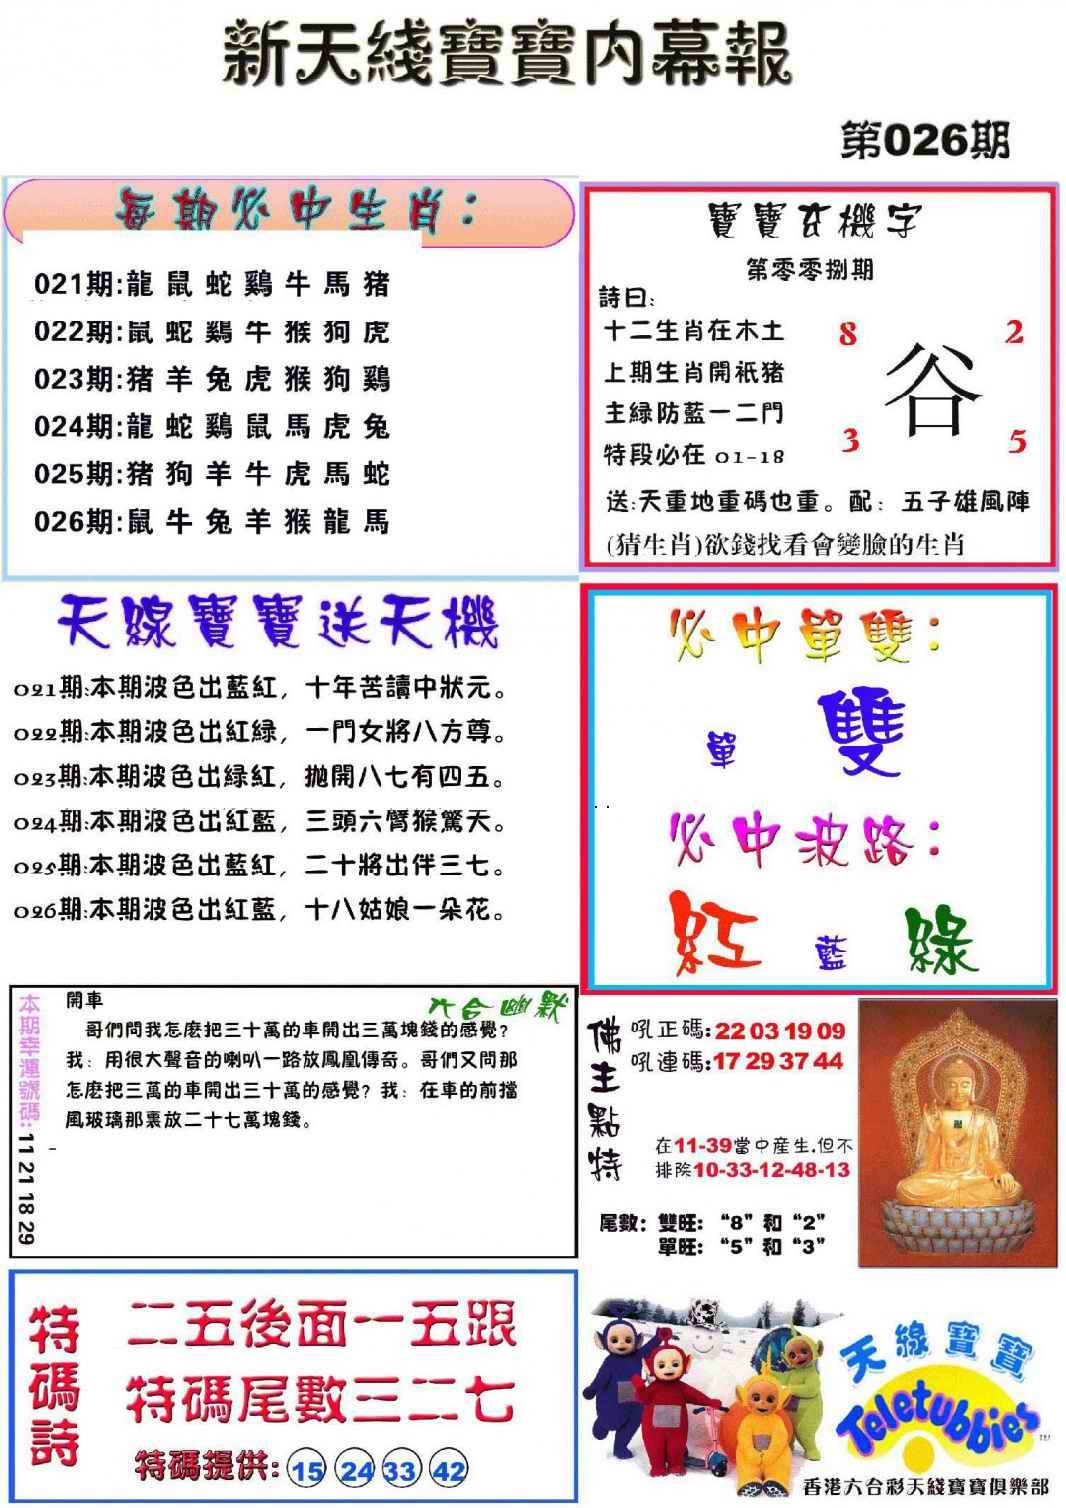 新天綫寶寶内幕報
第026期
每期必中生肖：
021期:龍鼠蛇鷄牛馬猪
022期:鼠蛇鷄牛猴狗虎
023期:猪羊兔虎猴狗鷄
024期:龍蛇鷄鼠馬虎兔
025期:猪狗羊牛虎馬蛇
026期:鼠牛兔羊猴龍馬
寶寶玄機字
第零零捌期
詩曰:
十二生肖在木土
上期生肖開衹猪
主緑防藍一二門
特段必在 01-18
8 2
谷
3 5
送:天重地重碼也重。配：五子雄風陣
(猜生肖)欲錢找看會變臉的生肖
天線寶寶送天機
021期:本期波色出藍紅，十年苦讀中狀元。
022期:本期波色出紅緑，一門女將八方尊。
023期:本期波色出緑紅，拋開八七有四五。
024期:本期波色出紅藍，三頭六臂猴驚天。
025期:本期波色出藍紅，二十將出伴三七。
026期:本期波色出紅藍，十八姑娘一朵花。
必中單雙：
單 雙
必中波路：
紅 藍 綠
本期幸運號碼:11 21 18 29
六合幽默
開車
哥們問我怎麽把三十萬的車開出三萬塊錢的感覺？
我：用很大聲音的喇叭一路放鳳凰傳奇。哥們又問那
怎麽把三萬的車開出三十萬的感覺？我：在車的前擋
風玻璃那裏放二十七萬塊錢。
佛主點特
吼正碼:22 03 19 09
吼連碼:17 29 37 44
在11-39當中産生.但不
排除10-33-12-48-13
尾數：雙旺：“8”和“2”
單旺：“5”和“3”
特碼詩
二五後面一五跟
特碼尾數三二七
特碼提供: 15 24 33 42
天線寶寶
Teletubbies
TM
香港六合彩天綫寶寶俱樂部